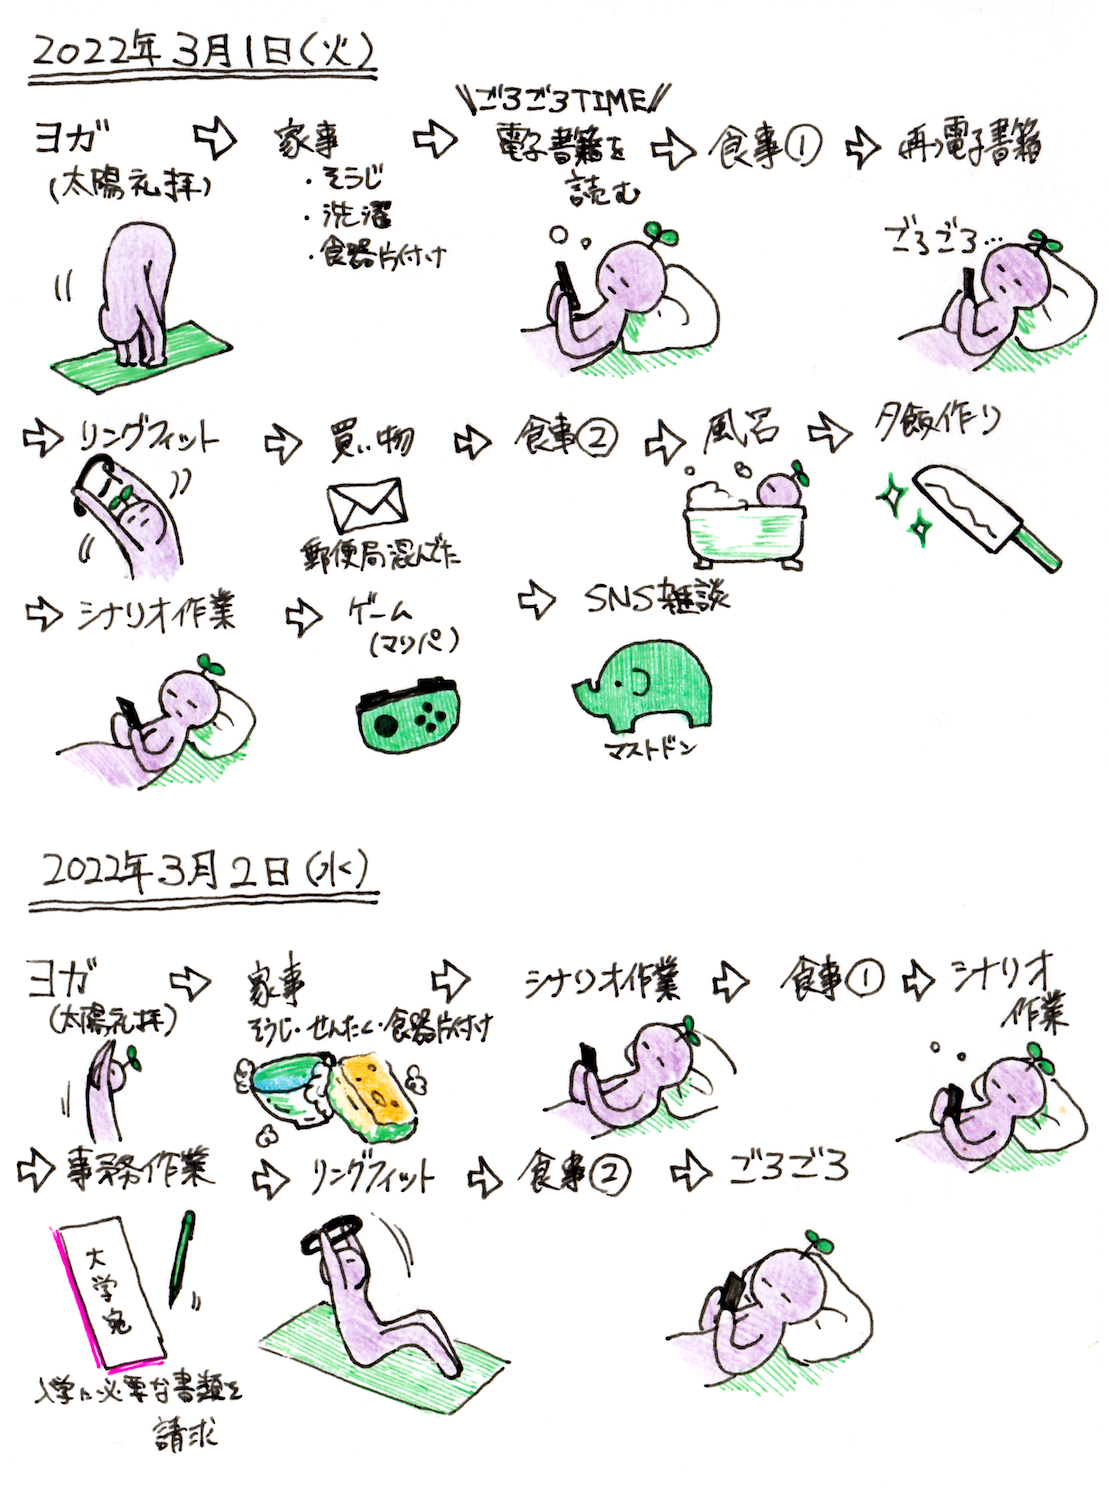 2022年3月1日(火)
ヨガ ⇨ 家事 ⇨ \\ごろごろTIME// 電子書籍を ⇨ 食事① ⇨ (再)電子書籍
(太陽礼拝)
・そうじ
・洗濯
・食器片付け
読む
ごろごろ…
⇨ リングフィット ⇨ 買い物 ⇨ 食事② ⇨ 風呂 ⇨ 夕飯作り
郵便局混んでた
⇨ シナリオ作業 ⇨ ゲーム ⇨ SNS雑談
(マリパ)
マストドン
2022年3月2日(水)
ヨガ ⇨ 家事 ⇨ シナリオ作業 ⇨ 食事① ⇨ シナリオ
作業
(太陽礼拝)
そうじ・せんたく・食器片付け
⇨ 事務作業 ⇨ リングフィット ⇨ 食事② ⇨ ごろごろ
大学宛
入学に必要な書類を
請求